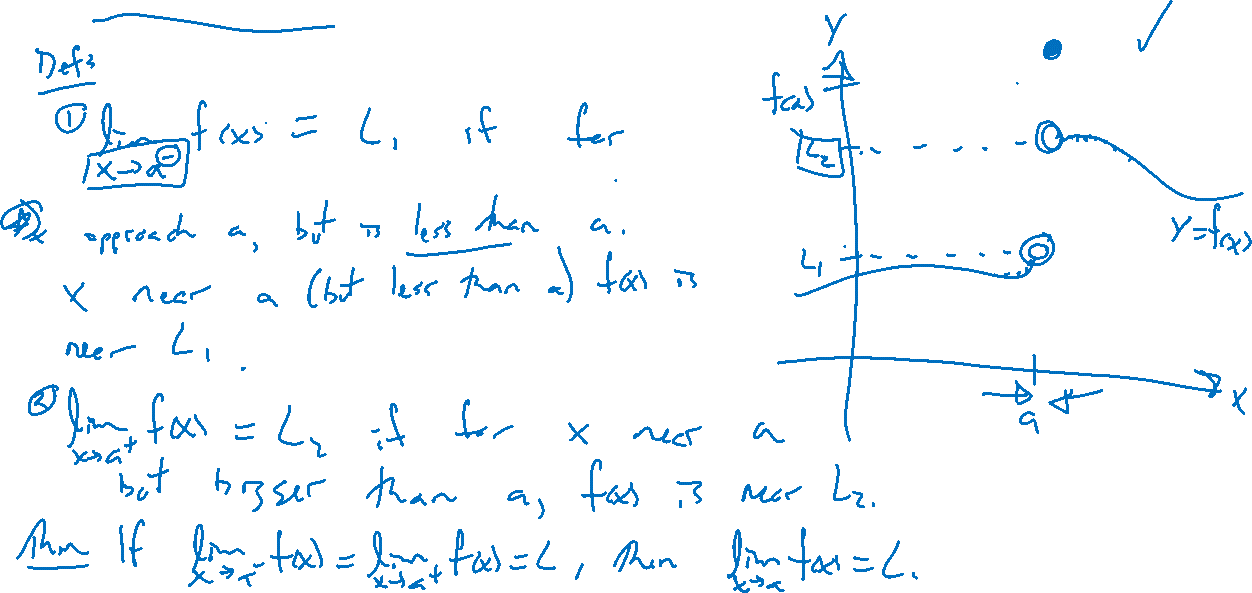 Defs
① lim x→a⁻ f(x) = L₁ if for
x approach a, but is less than a.
x near a (but less than a) f(x) is
near L₁.
② lim x→a⁺ f(x) = L₂ if for x near a
but bigger than a, f(x) is near L₂.
Thm If lim x→a⁻ f(x) = lim x→a⁺ f(x) = L, then lim x→a f(x) = L.
Y
f(a)
L₂
L₁
Y=f(x)
a
X